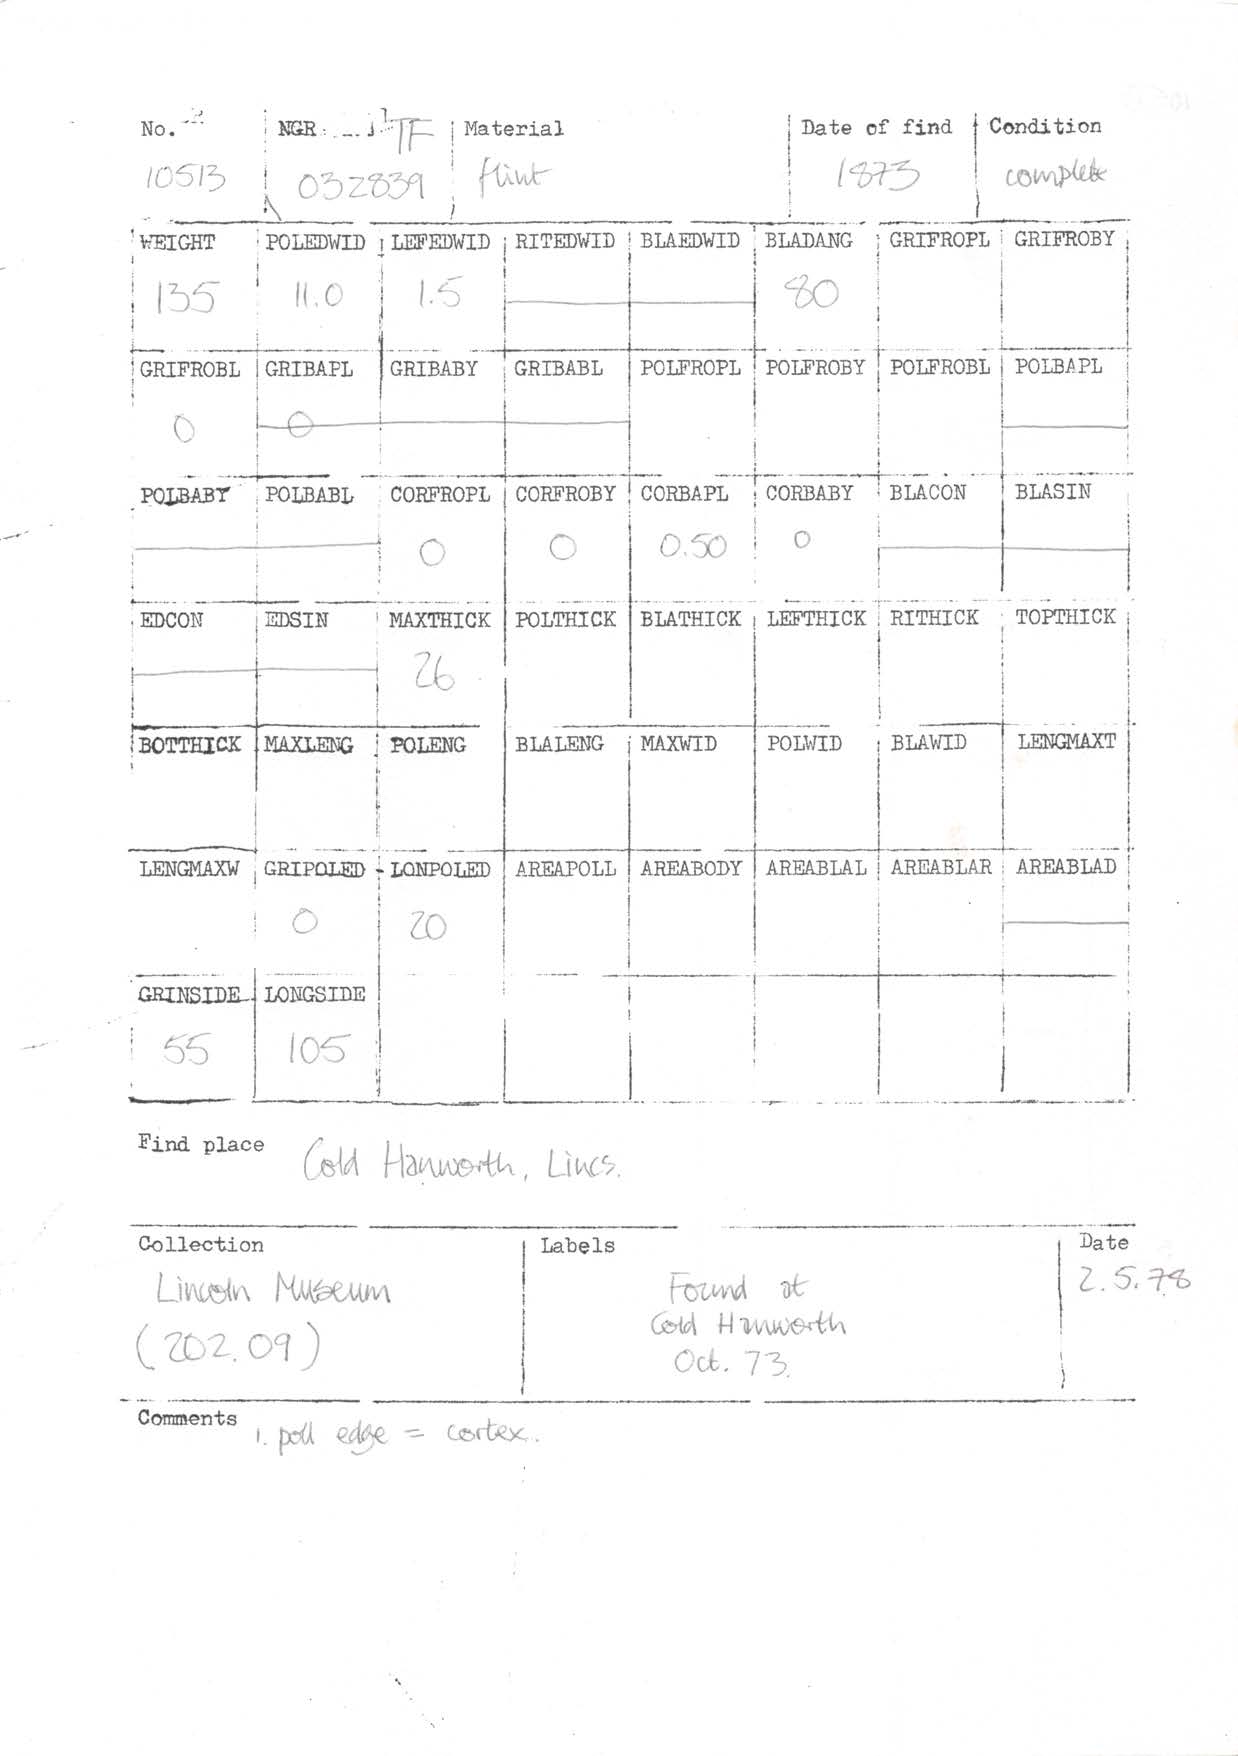 No. NGR TF Material Date of find Condition
10513 032839 flint 1873 complete
WEIGHT POLEDWID LEFEDWID RITEDWID BLAEDWID BLADANG GRIFROPL GRIFROBY
135 11.0 1.5 80
GRIFROBL GRIBAPL GRIBABY GRIBABL POLFROPL POLFROBY POLFROBL POLBAPL
0 0
POLBABY POLBABL CORFROPL CORFROBY CORBAPL CORBABY BLACON BLASIN
0 0 0.50 0
EDCON EDSIN MAXTHICK POLTHICK BLATHICK LEFTHICK RITHICK TOPTHICK
26
BOTTHICK MAXLENG POLENG BLALENG MAXWID POLWID BLAWID LENGMAXT
LENGMAXW GRIPOLED LONPOLED AREAPOLL AREABODY AREABLAL AREABLAR AREABLAD
0 20
GRINSIDE LONGSIDE
55 105
Find place Cold Hanworth, Lincs.
Collection Labels Date
Lincoln Museum Found at 2.5.78
(202.09) Cold Hanworth
Oct. 73.
Comments 1. poll edge = cortex.